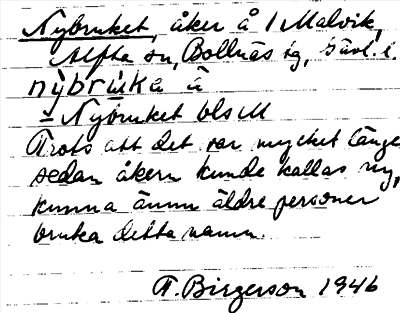 Nybruket, åker å 1 Malvik,
Alfta sn, Bollnäs tg, Gävl. l.
nỳbrùka å
= Nybruket bls M
Trots att det var mycket länge
sedan åkern kunde kallas ny,
kunna ännu äldre personer
bruka detta namn.
T. Birgerson 1946